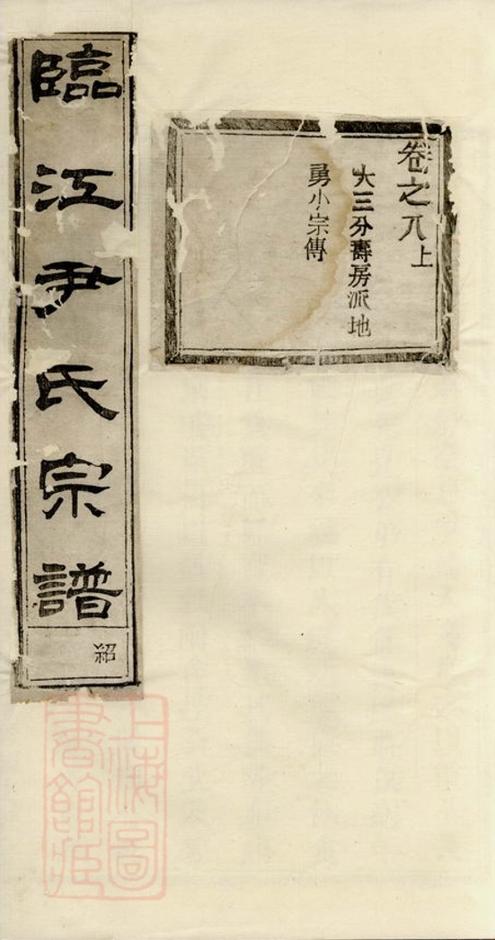 卷之八上
大三分壽房派地
勇小宗傳
臨江尹氏宗譜
紹
上海圖書館藏